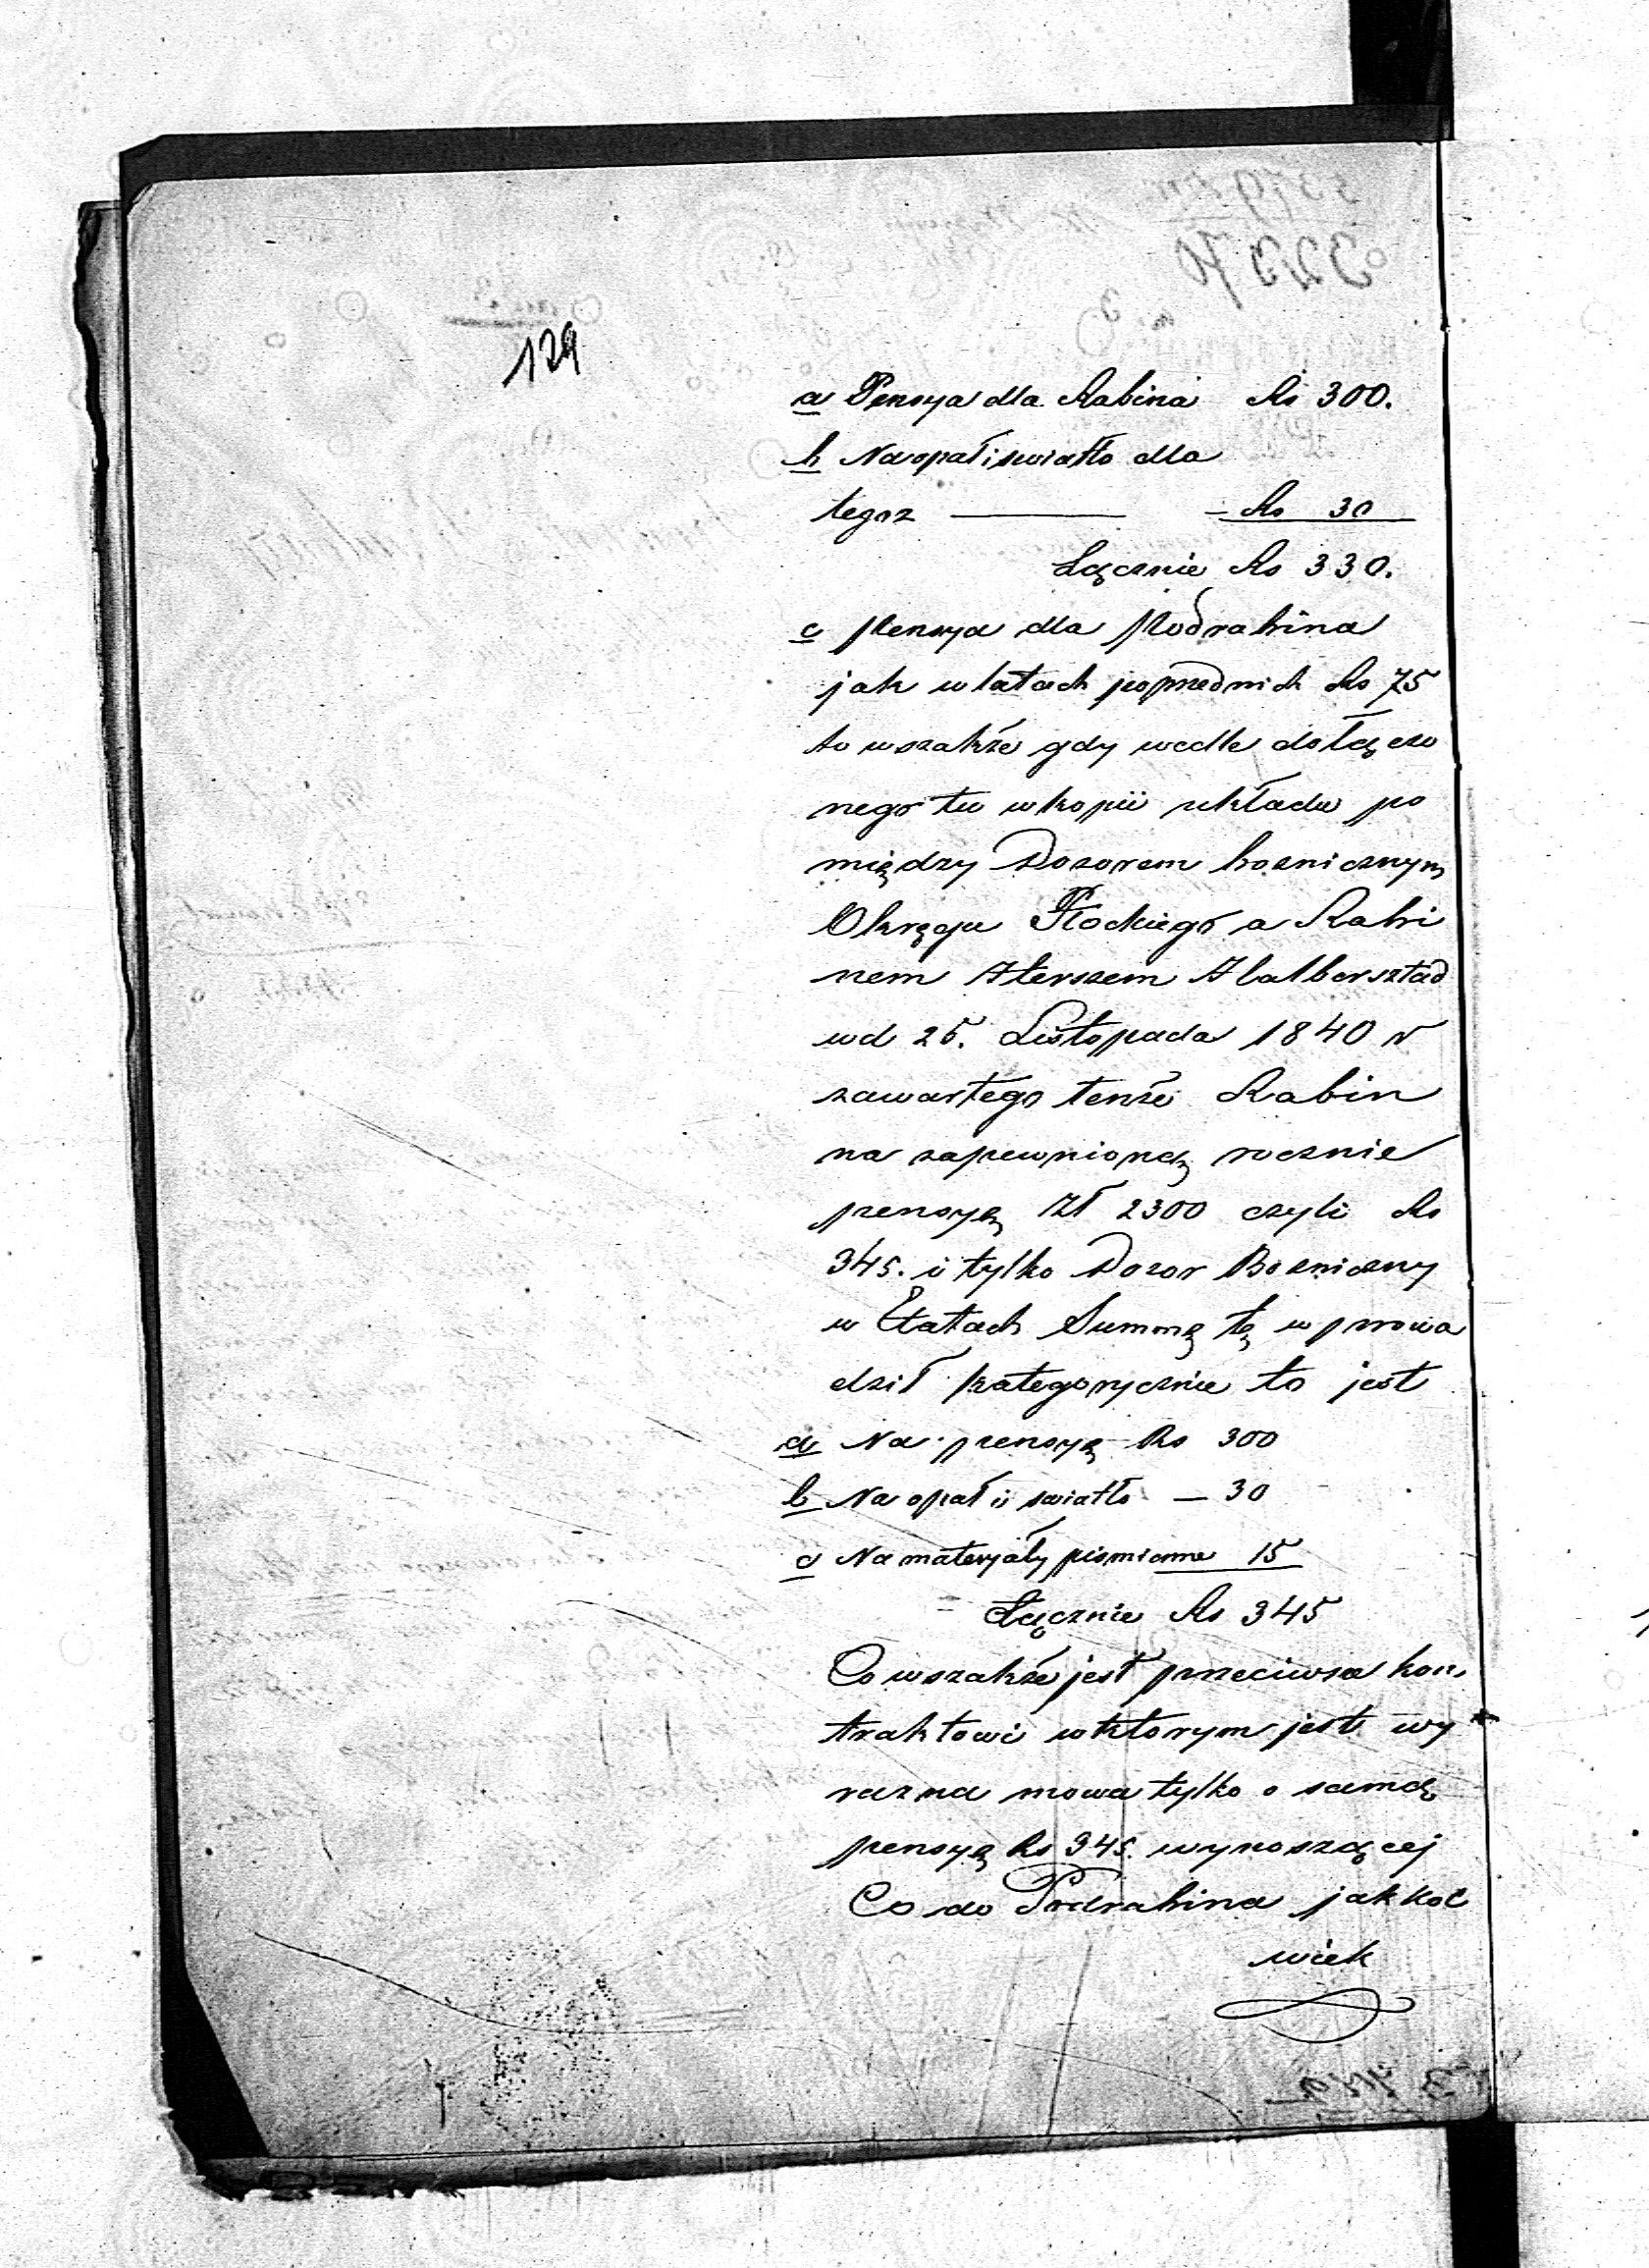 129
a Pensya dla Rabina Rs 300.
b Na opał i swiatło dla
tegoz — — Rs 30
Łącznie Rs 330.
c pensya dla Podrabina
jak w latach poprzednich Rs 75
to wszakże gdy wedle dołączo
nego tu w kopii układu po
między Dozorem boznicznym
Okręgu Płockiego a Rabi
nem Herszem Halbersztad
wd 25. Listopada 1840 r
zawartego tenże Rabin
na zapewnioną rocznie
pensyą Zł 2300 czyli Rs
345. i tylko Dozor Bozniczny
w Etatach Summę tę wprowa
dził kategorycznie to jest
a Na pensyą Rs 300
b Na opał i swiatło — 30
c Na materyały pismienne 15
Łącznie Rs 345
Co wszakże jest przeciwne kon
traktowi w którym jest wy
razna mowa tylko o samą
pensyą Rs 345. wynoszącej
Co do Podrabina jakkol
wiek